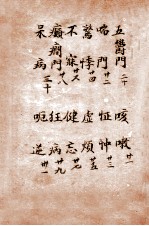 五鬱門 二十 咳嗽 廿一
喘門 廿二 怔忡 廿三
驚悸 廿四 虛煩 廿五
不寐 廿六 健忘 廿七
癲癇門 廿八 狂病 廿九
呆病 三十 呃逆 卅一